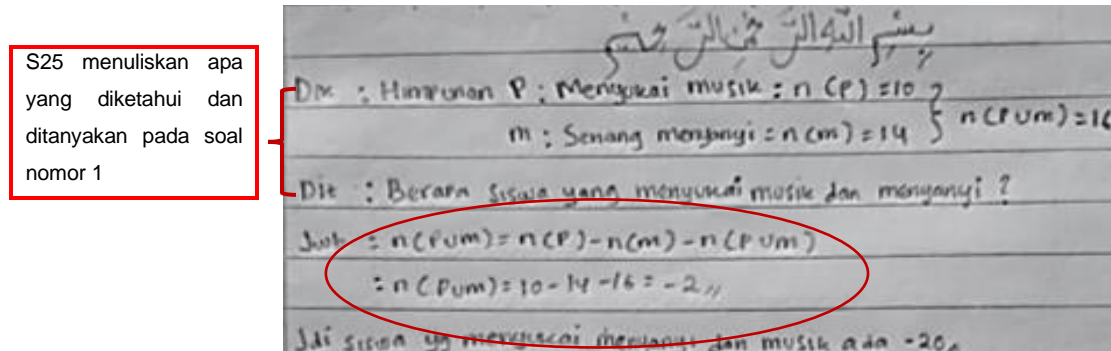 S25 menuliskan apa
yang diketahui dan
ditanyakan pada soal
nomor 1
Dik : Himpunan P : Menyukai musik : n (P) = 10
m : Senang menyanyi = n(m) = 14 } n(PUm) = 16
Dit : Berapa siswa yang menyukai musik dan menyanyi ?
Jwb : n(PUm) = n(P) - n(m) - n(PUm)
: n(PUm) = 10 - 14 - 16 = -2 //
Jdi siswa yg menyukai menyanyi dan musik ada -20